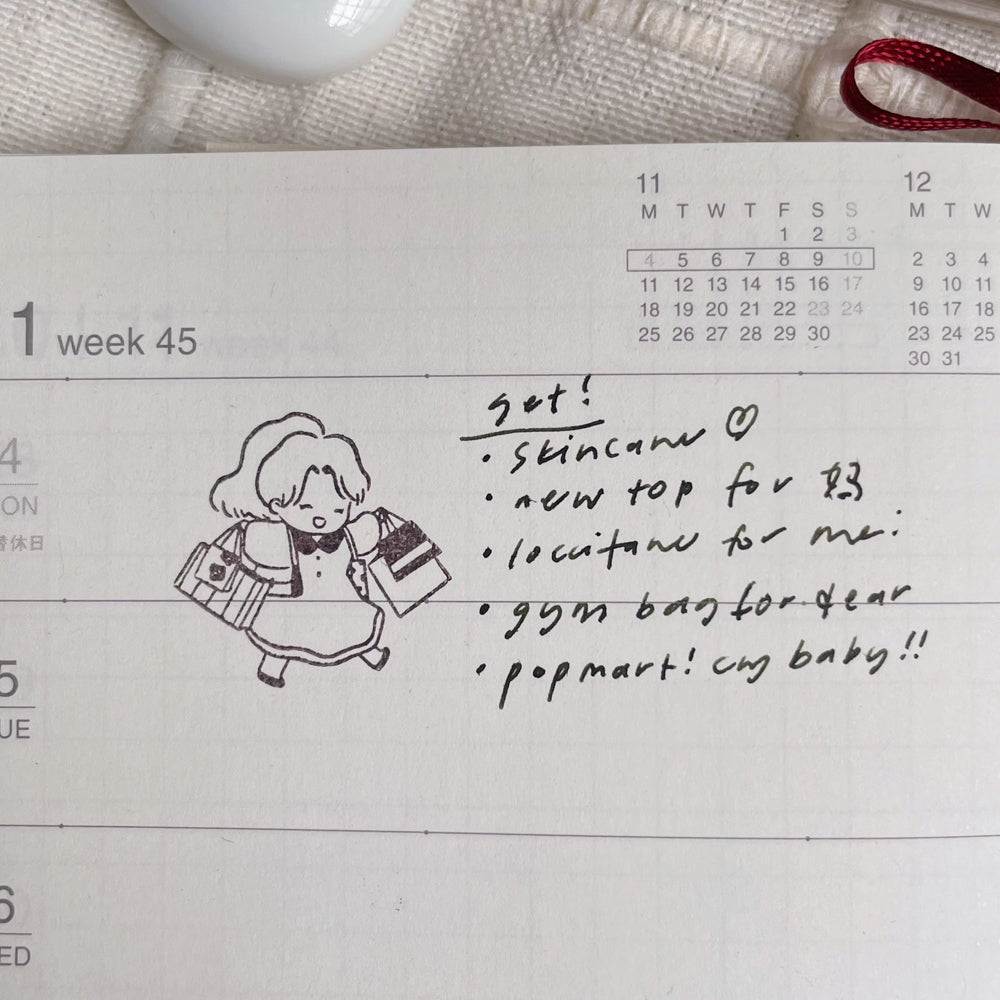 11
M T W T F S S
1 2 3
4 5 6 7 8 9 10
11 12 13 14 15 16 17
18 19 20 21 22 23 24
25 26 27 28 29 30
12
M T W
2 3 4
9 10 11
16 17 18
23 24 25
30 31
1 week 45
4
ON
替休日
get!
• skincare ♡
• new top for 妈
• loccitane for me:
• gym bag for dear
• popmart! cry baby!!
5
UE
6
ED